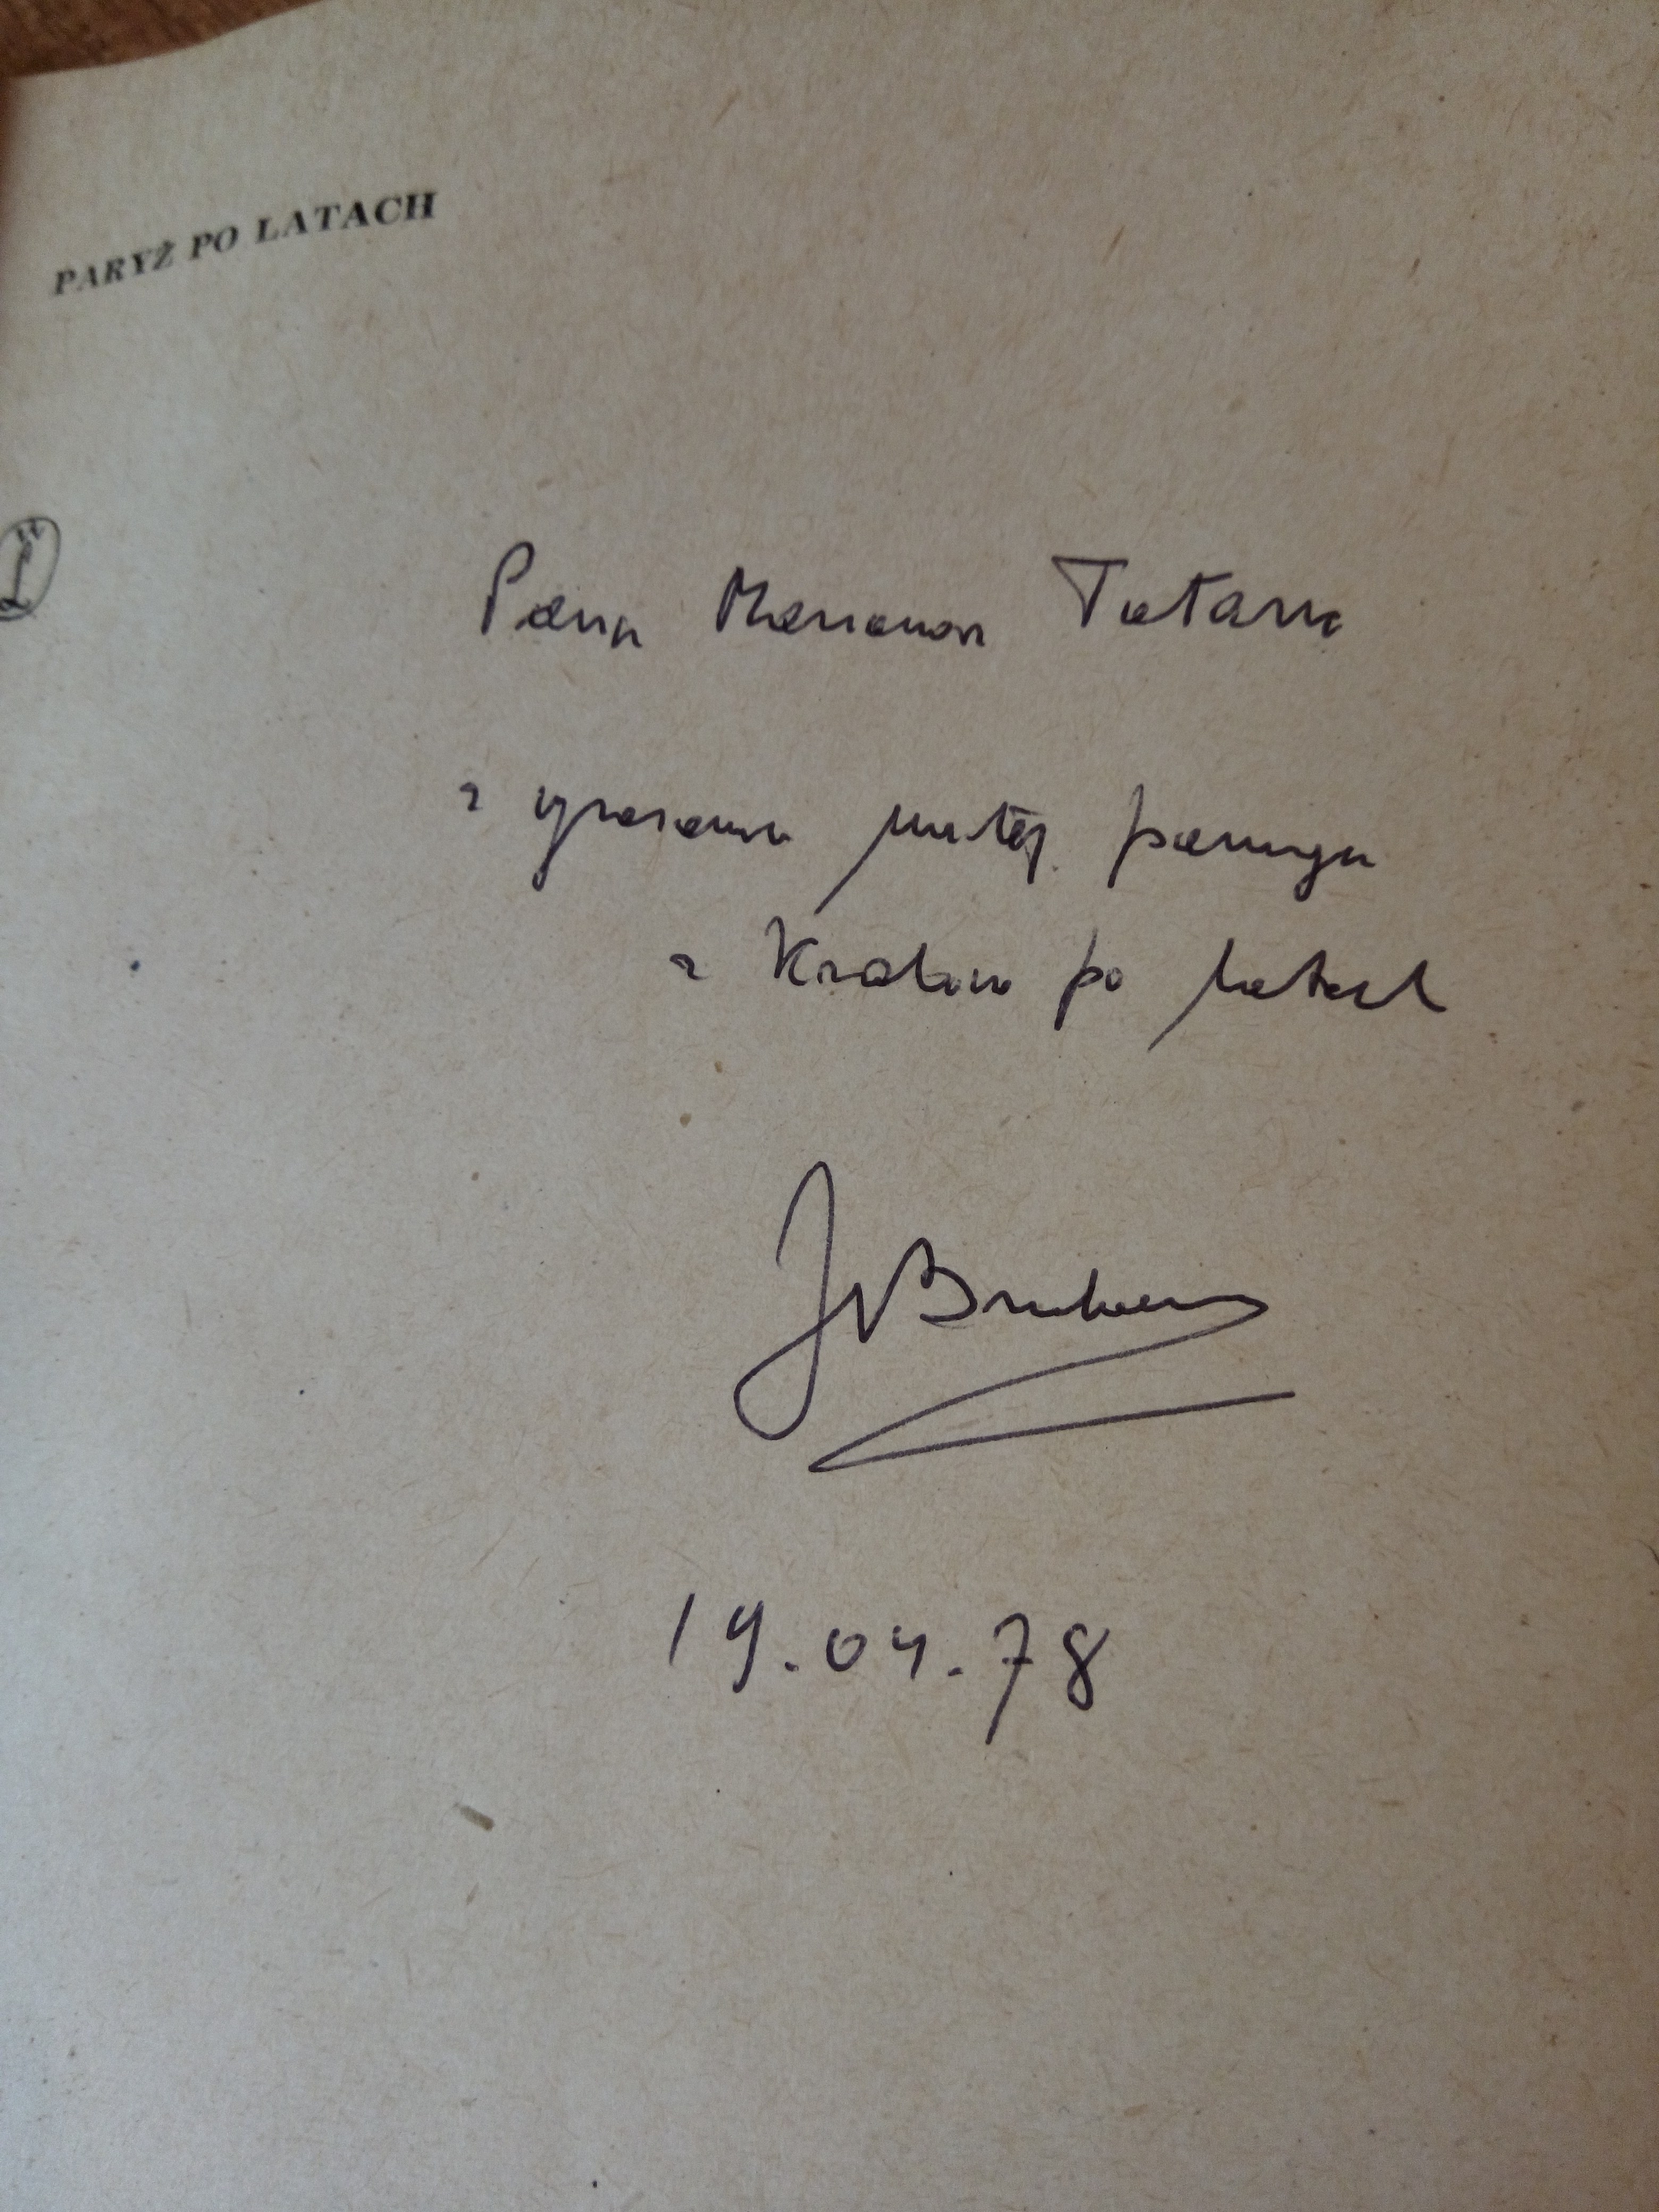 PARYŻ PO LATACH
Panu Marianowi Tatara
z wyrazami miłej pamięci
z Krakowa po latach
19.04.78